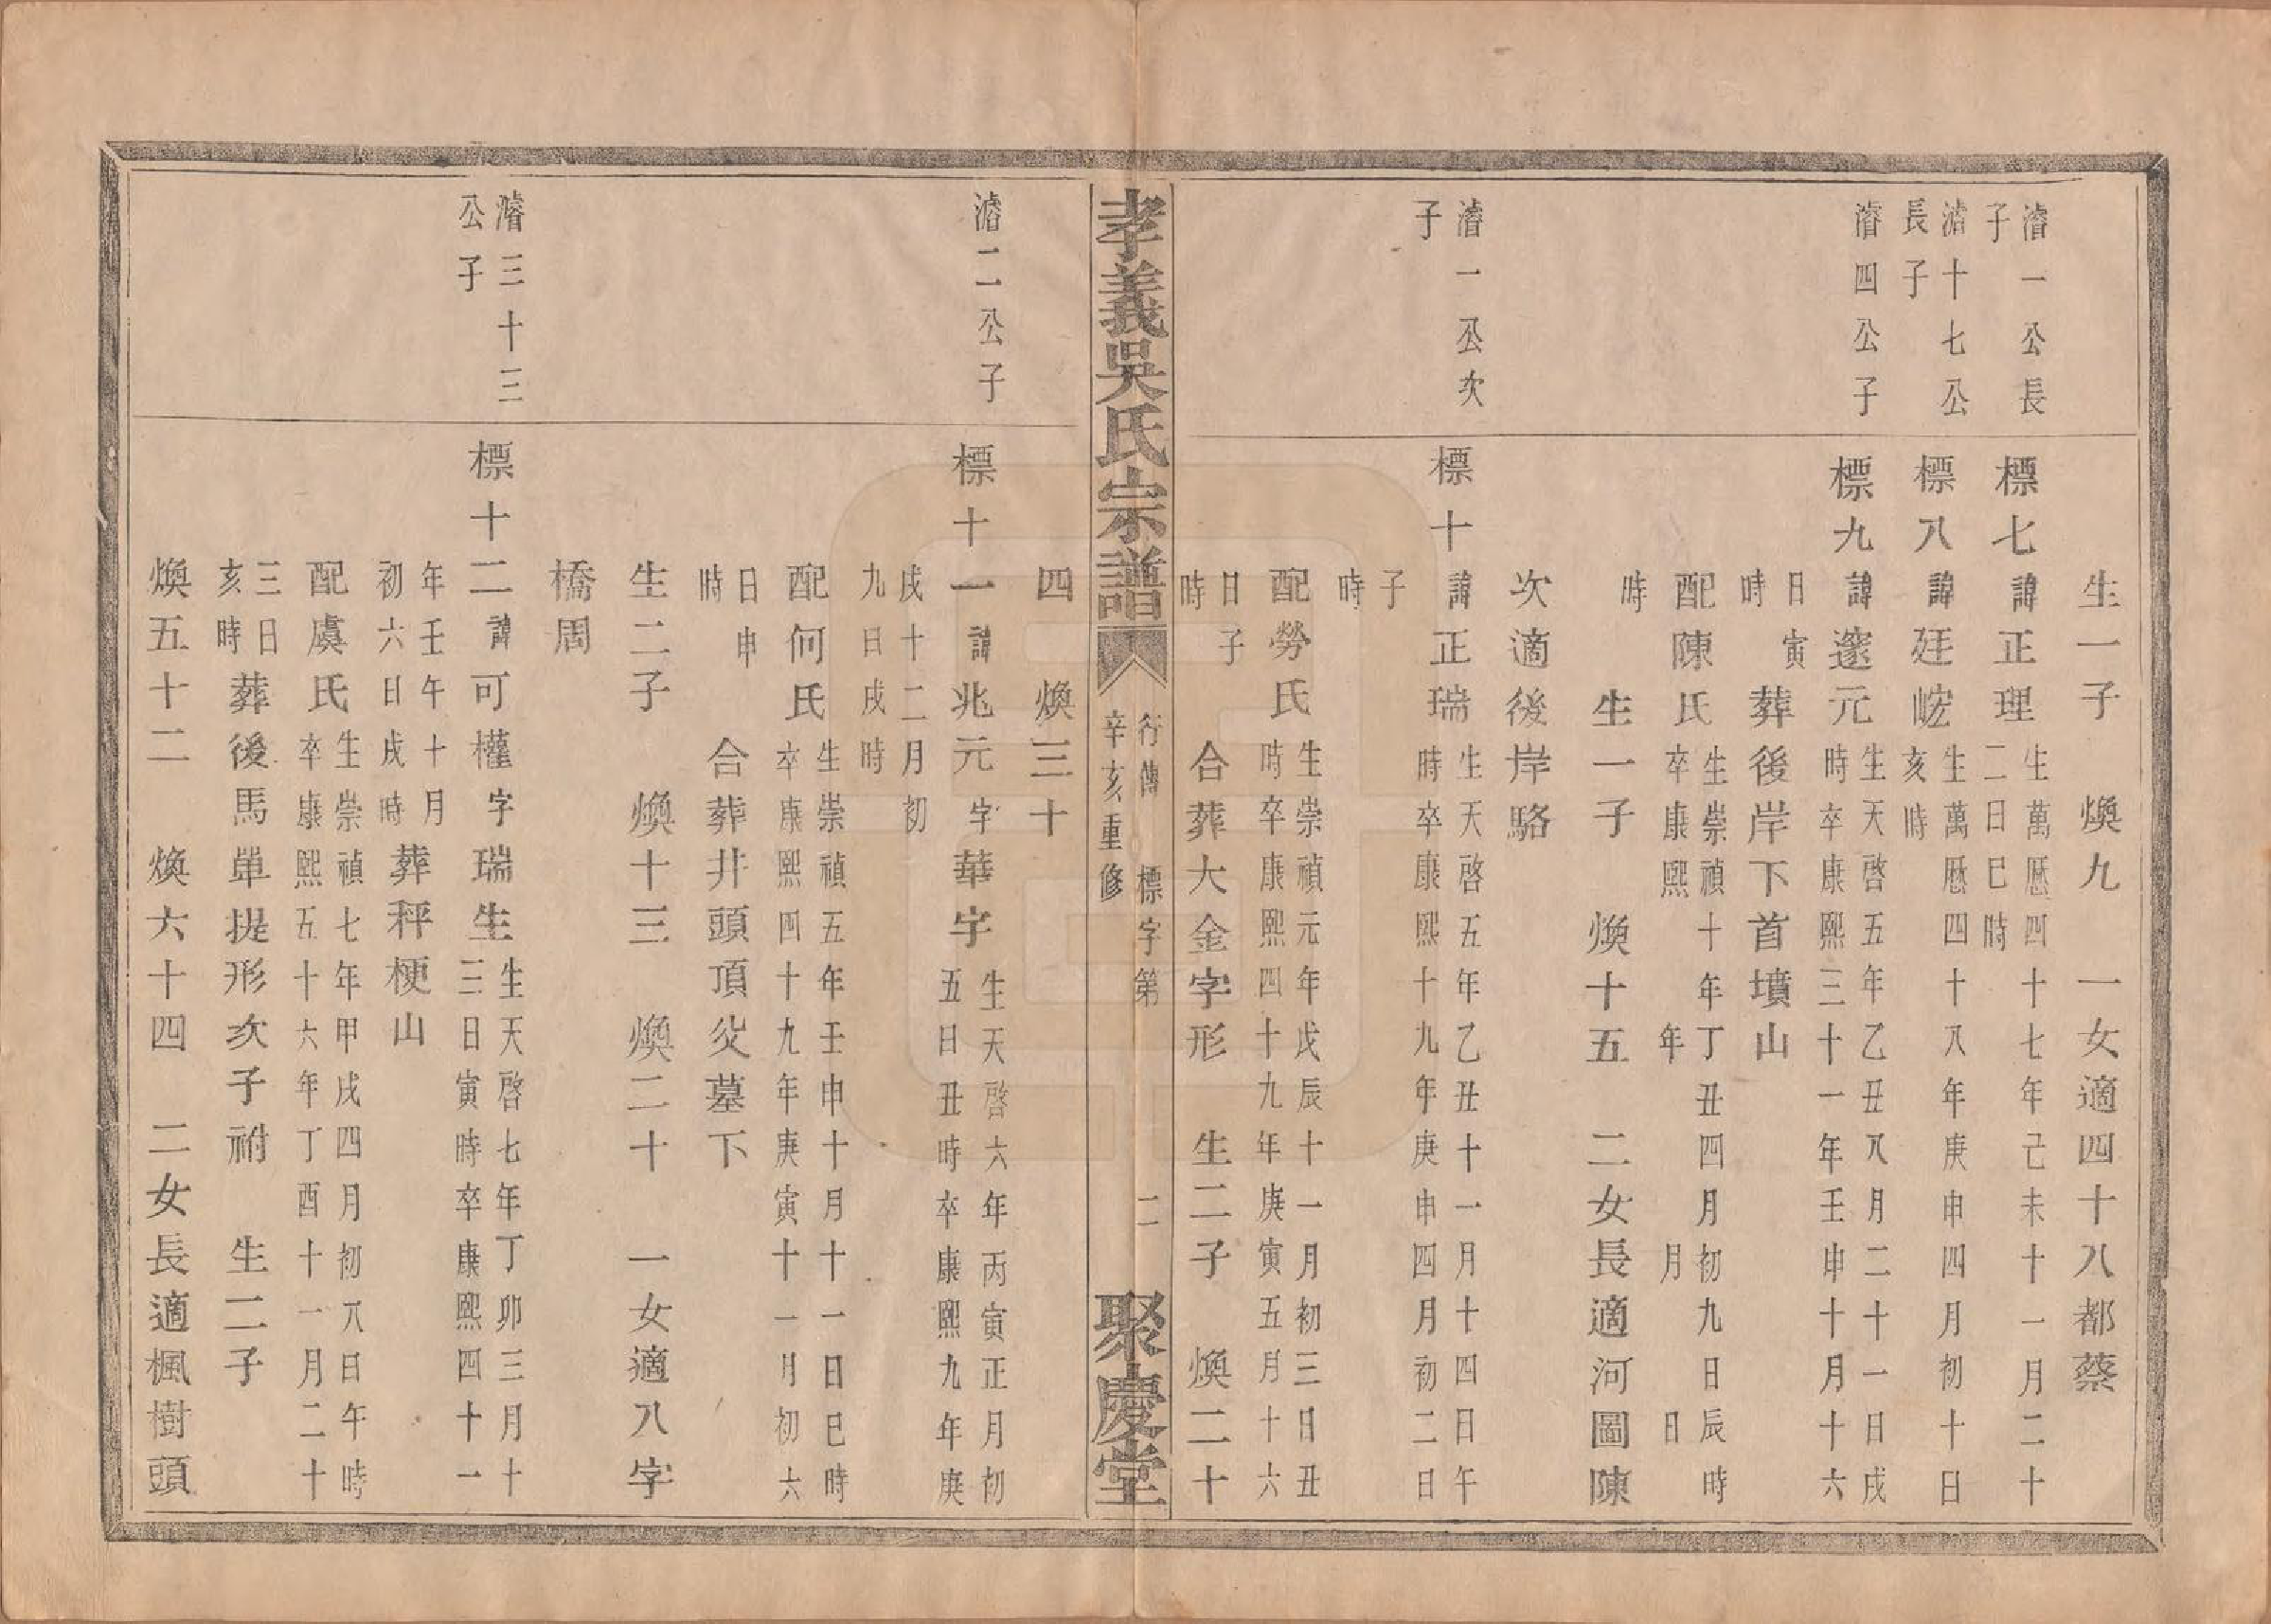 生一子　煥九　一女適四十八都蔡
濬一公長
子
標七諱正理生萬曆四十七年己未十一月二十
二日巳時
濬十七公
長子
標八諱廷㟏生萬曆四十八年庚申四月初十日
亥時
濬四公子
標九諱邃元生天啓五年乙丑八月二十一日戌
時卒康熙三十一年壬申十月十六
日寅
時　葬後岸下首墳山
配陳氏生崇禎十年丁丑四月初九日辰時
卒康熙　年　月　日
時
生一子　煥十五　二女長適河圖陳
次適後岸駱
濬一公次
子
標十諱正瑞生天啓五年乙丑十一月十四日午
時卒康熙十九年庚申四月初二日
子
時
配勞氏生崇禎元年戊辰十一月初三日丑
時卒康熙四十九年庚寅五月十六
日子
時　合葬大金字形　生二子　煥二十
孝義吳氏宗譜
行傳　標字第　二
辛亥重修
聚慶堂
四　煥三十
濬二公子
標十一諱兆元字華字生天啓六年丙寅正月初
五日丑時卒康熙九年庚
戌十二月初
九日戌時
配何氏生崇禎五年壬申十月十一日巳時
卒康熙四十九年庚寅十一月初六
日申
時　合葬井頭頂父墓下
生二子　煥十三　煥二十　一女適八字
橋周
濬三十三
公子
標十二諱可權字瑞生生天啓七年丁卯三月十
三日寅時卒康熙四十一
年壬午十月
初六日戌時　葬秤梗山
配虞氏生崇禎七年甲戌四月初八日午時
卒康熙五十六年丁酉十一月二十
三日
亥時　葬後馬單提形次子祔　生二子
煥五十二　煥六十四　二女長適楓樹頭